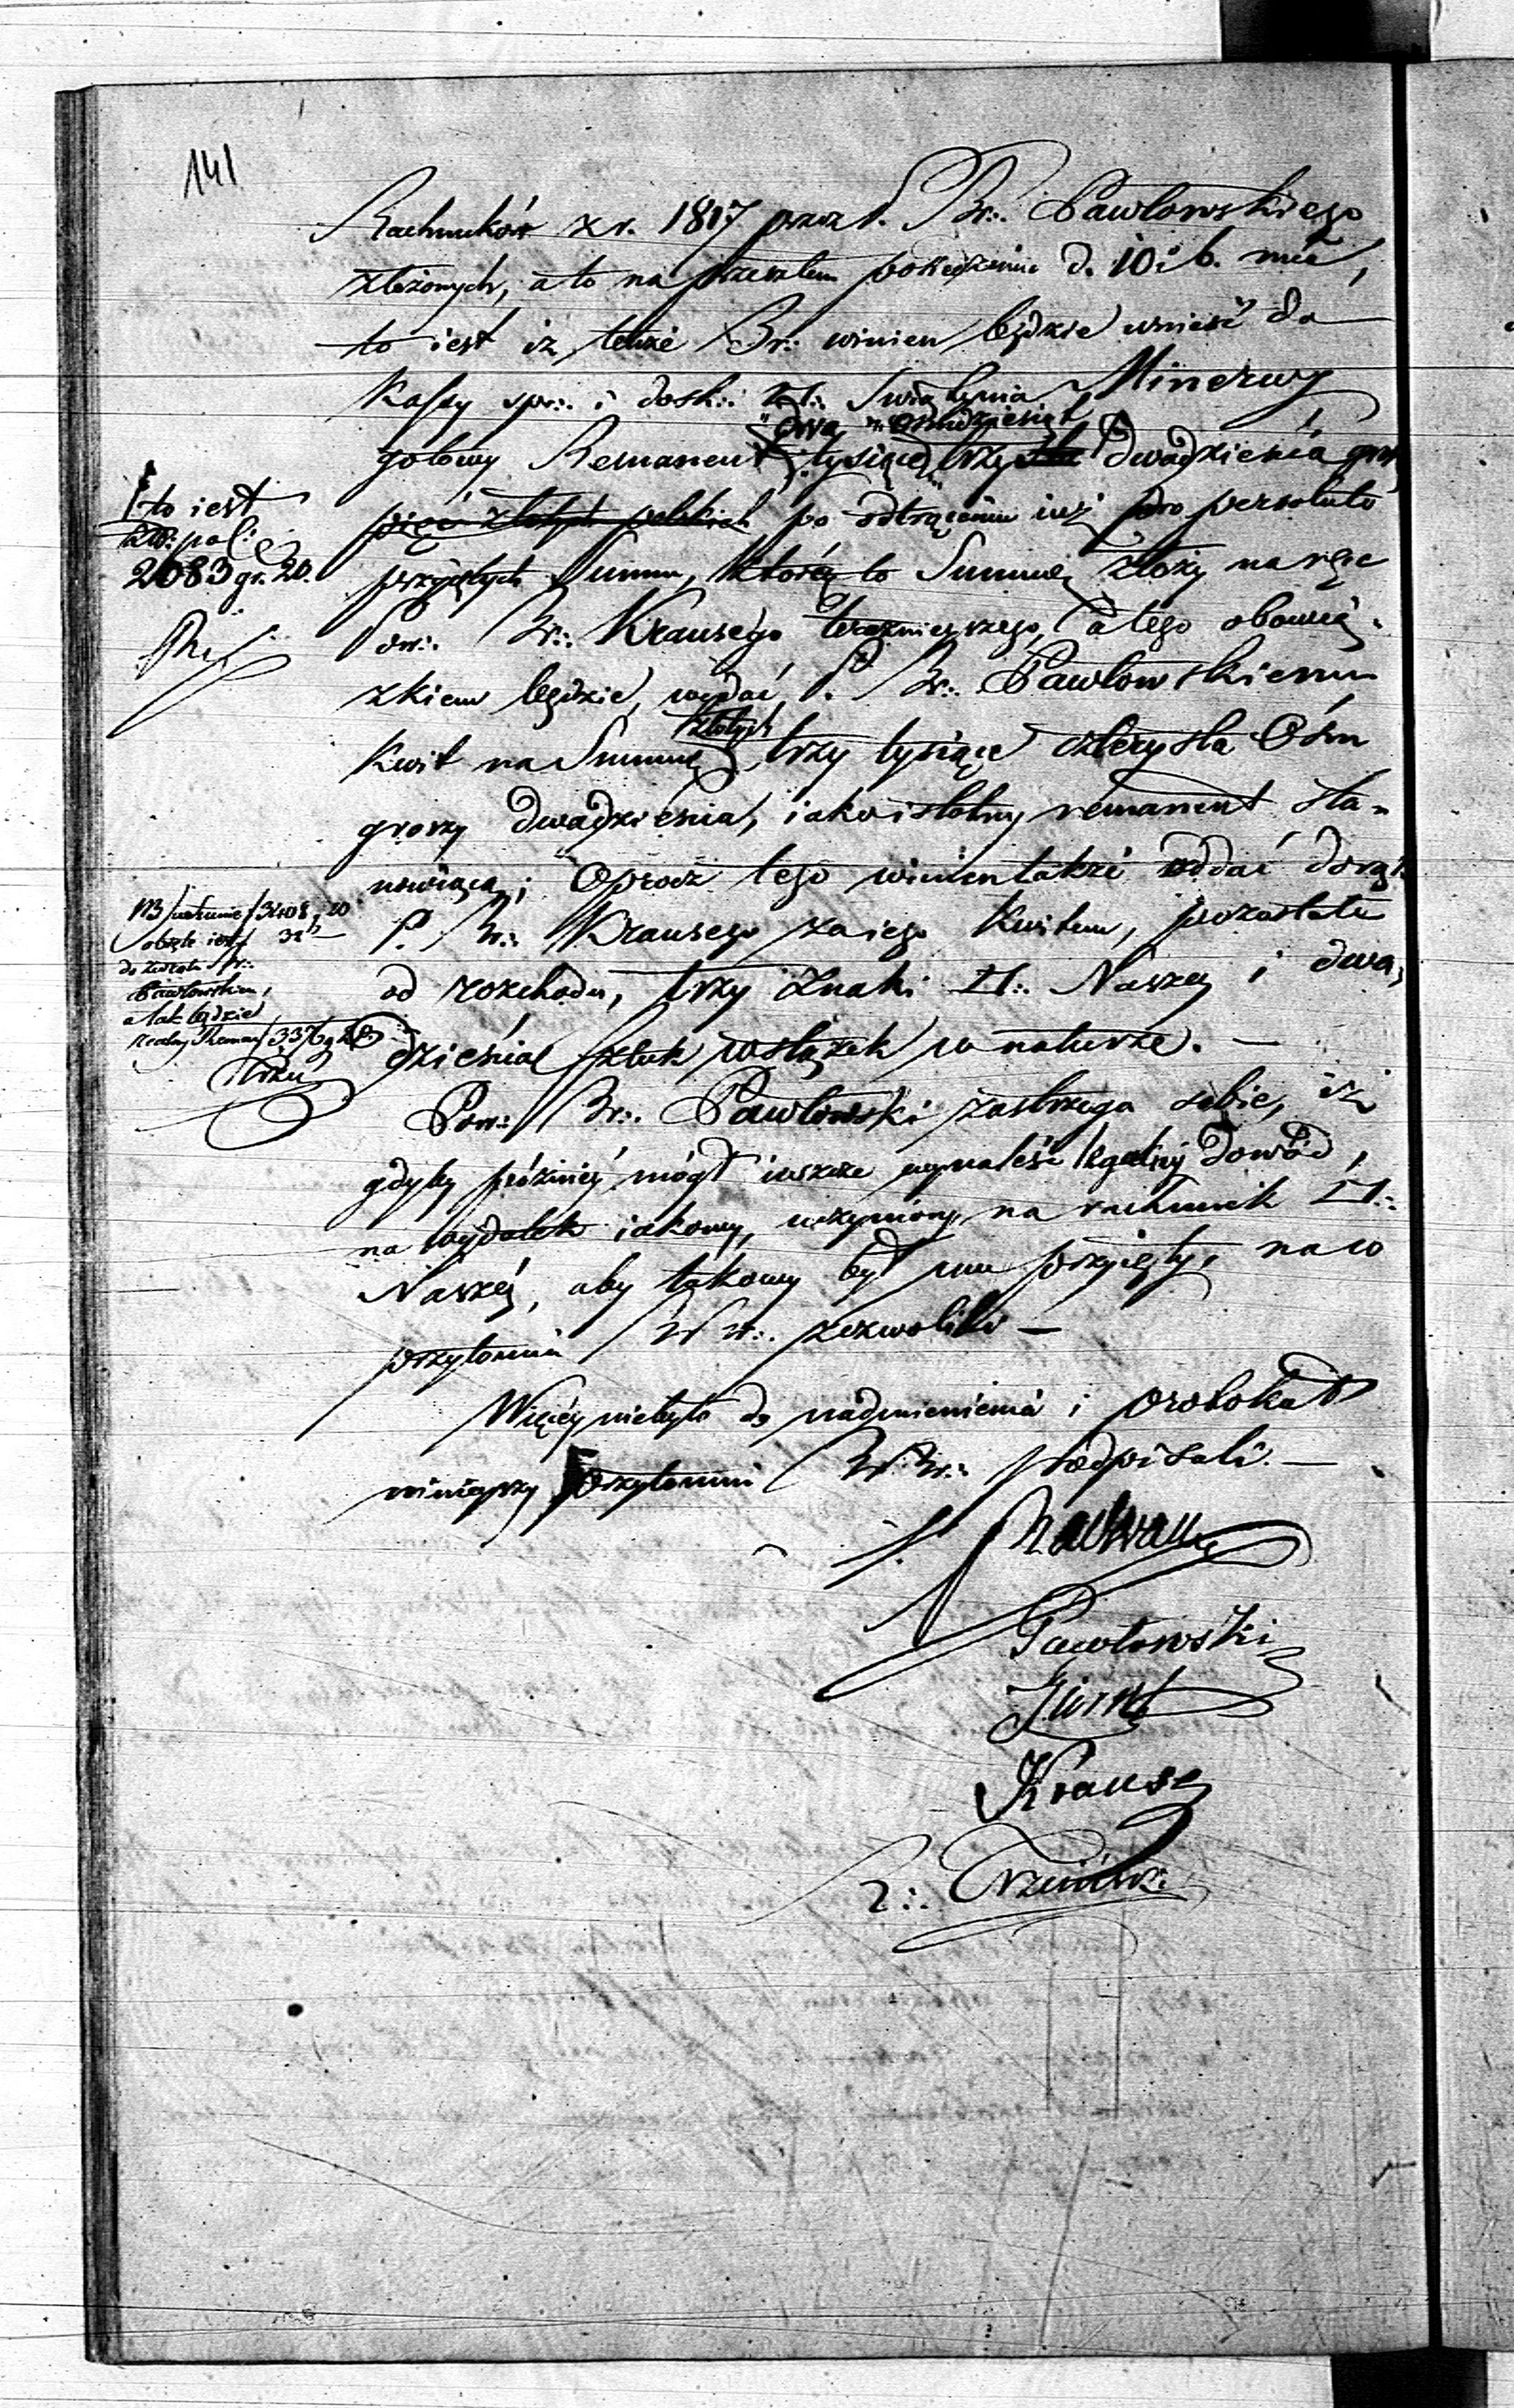 141
Rachunków z r. 1817 przez P. Br∴ Pawłowskiego
złożonych, a to na przeszłem posiedzeniu d. 10 b. mca,
to iest iż tenże Br∴ winien będzie wnieść do
Kassy spr∴ i dosk∴ □∴ Swiątynia Minerwy
"dwa "osmdziesiąt
gotowy Remanent tysiące trzy sta dwadzieścia grszy
pięć złotych polskich po odtrąceniu iuż pro persoluto
przyiętych Summ, którą to Summę złoży na ręce
Pow∴ Br∴ Krausego teraznieyszego, a tego obowią-
zkiem będzie, wydać P. Br∴ Pawłowskiemu
złotych
Kwit na Summę trzy tysiące czterysta Ośm
groszy dwadzieścia, iako istotny remanent sta-
nowiącą; Oprocz tego winien także oddać do rąk
P. Br∴ Krausego za iego Kwitem, pozostałe
od rozchodu, trzy Znaki □∴ Naszey i dwa-
dzieścia sztuk wstążek w naturze. —
Pow∴ Br∴ Pawłowski zastrzega sobie, iż
gdyby pózniey mógł ieszcze wynaleść legalny dowód,
na wydatek iakowy, uczyniony na rachunek □∴
Naszéy, aby takowy był mu przyięty, na co
przytomni BBr∴ zezwolili —
Więcey niebyło do nadmienienia i protokół
ninieyszy przytomni BBr∴ podpisali. —
Pawłowski
Krause
to iest
złł: pol:
2083 gr. 20.
NB 3408, 20
32
do zwrotu Br∴
Pawłowskiem,
a tak będzie
realny Reman 3376 g 20